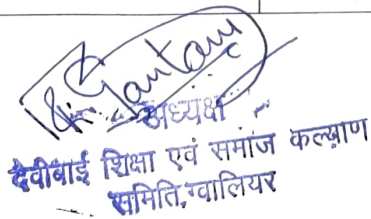 अध्यक्ष
देवीबाई शिक्षा एवं समाज कल्याण
समिति,ग्वालियर